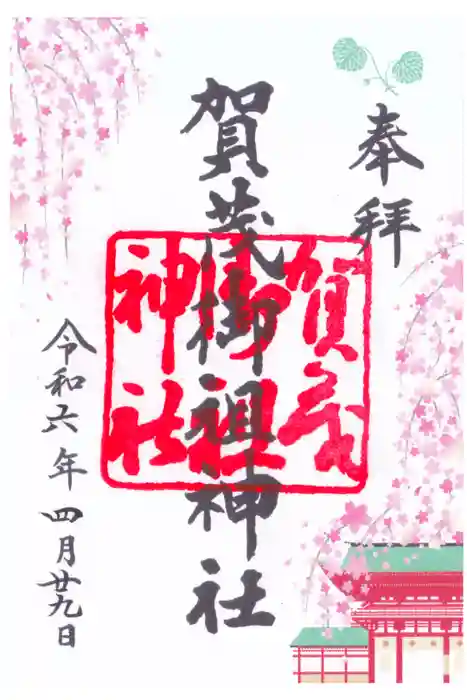 奉拝
賀茂御祖神社
賀茂
御祖
神社
令和六年四月廿九日